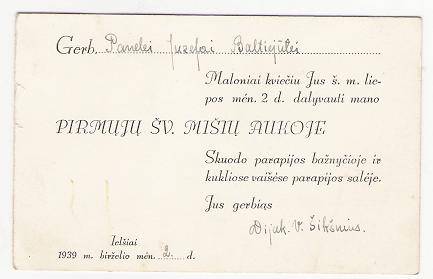 Gerb. Panelei Juzefai Baltiejūtei
Maloniai kviečiu Jus š. m. lie-
pos mėn. 2 d. dalyvauti mano
PIRMŲJŲ ŠV. MIŠIŲ AUKOJE
Skuodo parapijos bažnyčioje ir
kukliose vaišėse parapijos salėje.
Jus gerbiąs
Dijak. V. Šikšnius.
Ielšiai
1939 m. birželio mėn. 2. d.